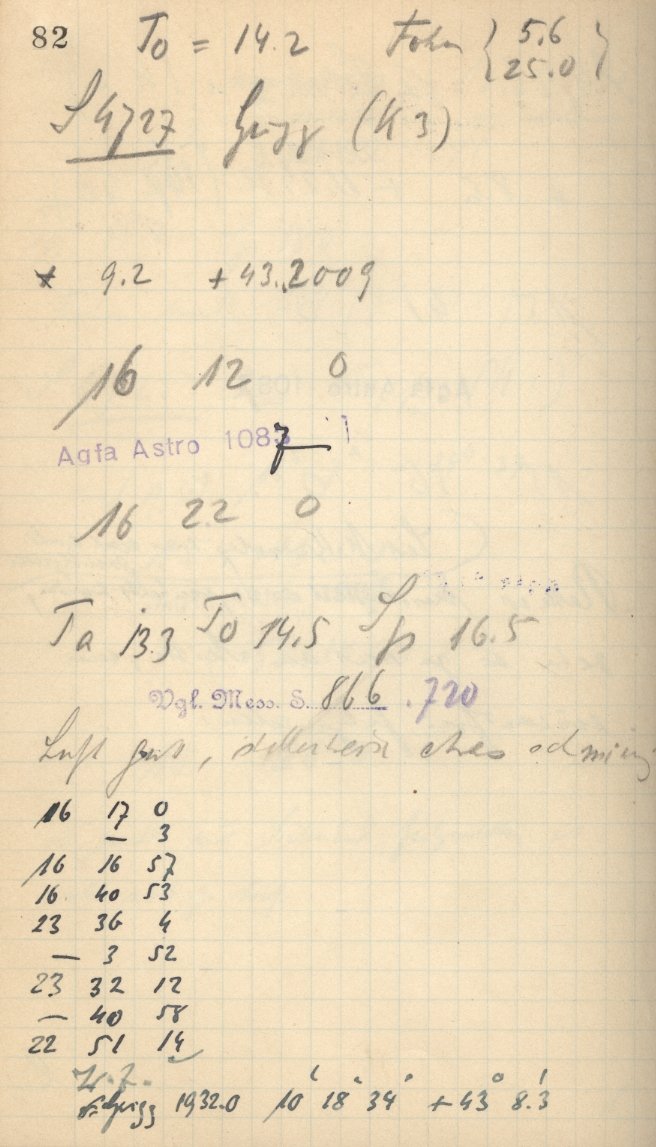 82 To = 14.2 Fokn { 5.6 }
{ 25.0 }
S 4727 Grigg (K3)
* 9.2 +43.2009
16 12 0
Agfa Astro 1087
16 22 0
Ta 13.3 To 14.5 Sp 16.5
Vgl. Mess. S. 866 .720
Luft gut, etwas
16 17 0
— 3
16 16 57
16 40 53
23 36 4
— 3 52
23 32 12
— 40 58
22 51 14
Grigg 1932.0 10 18 34 +43° 8.3'